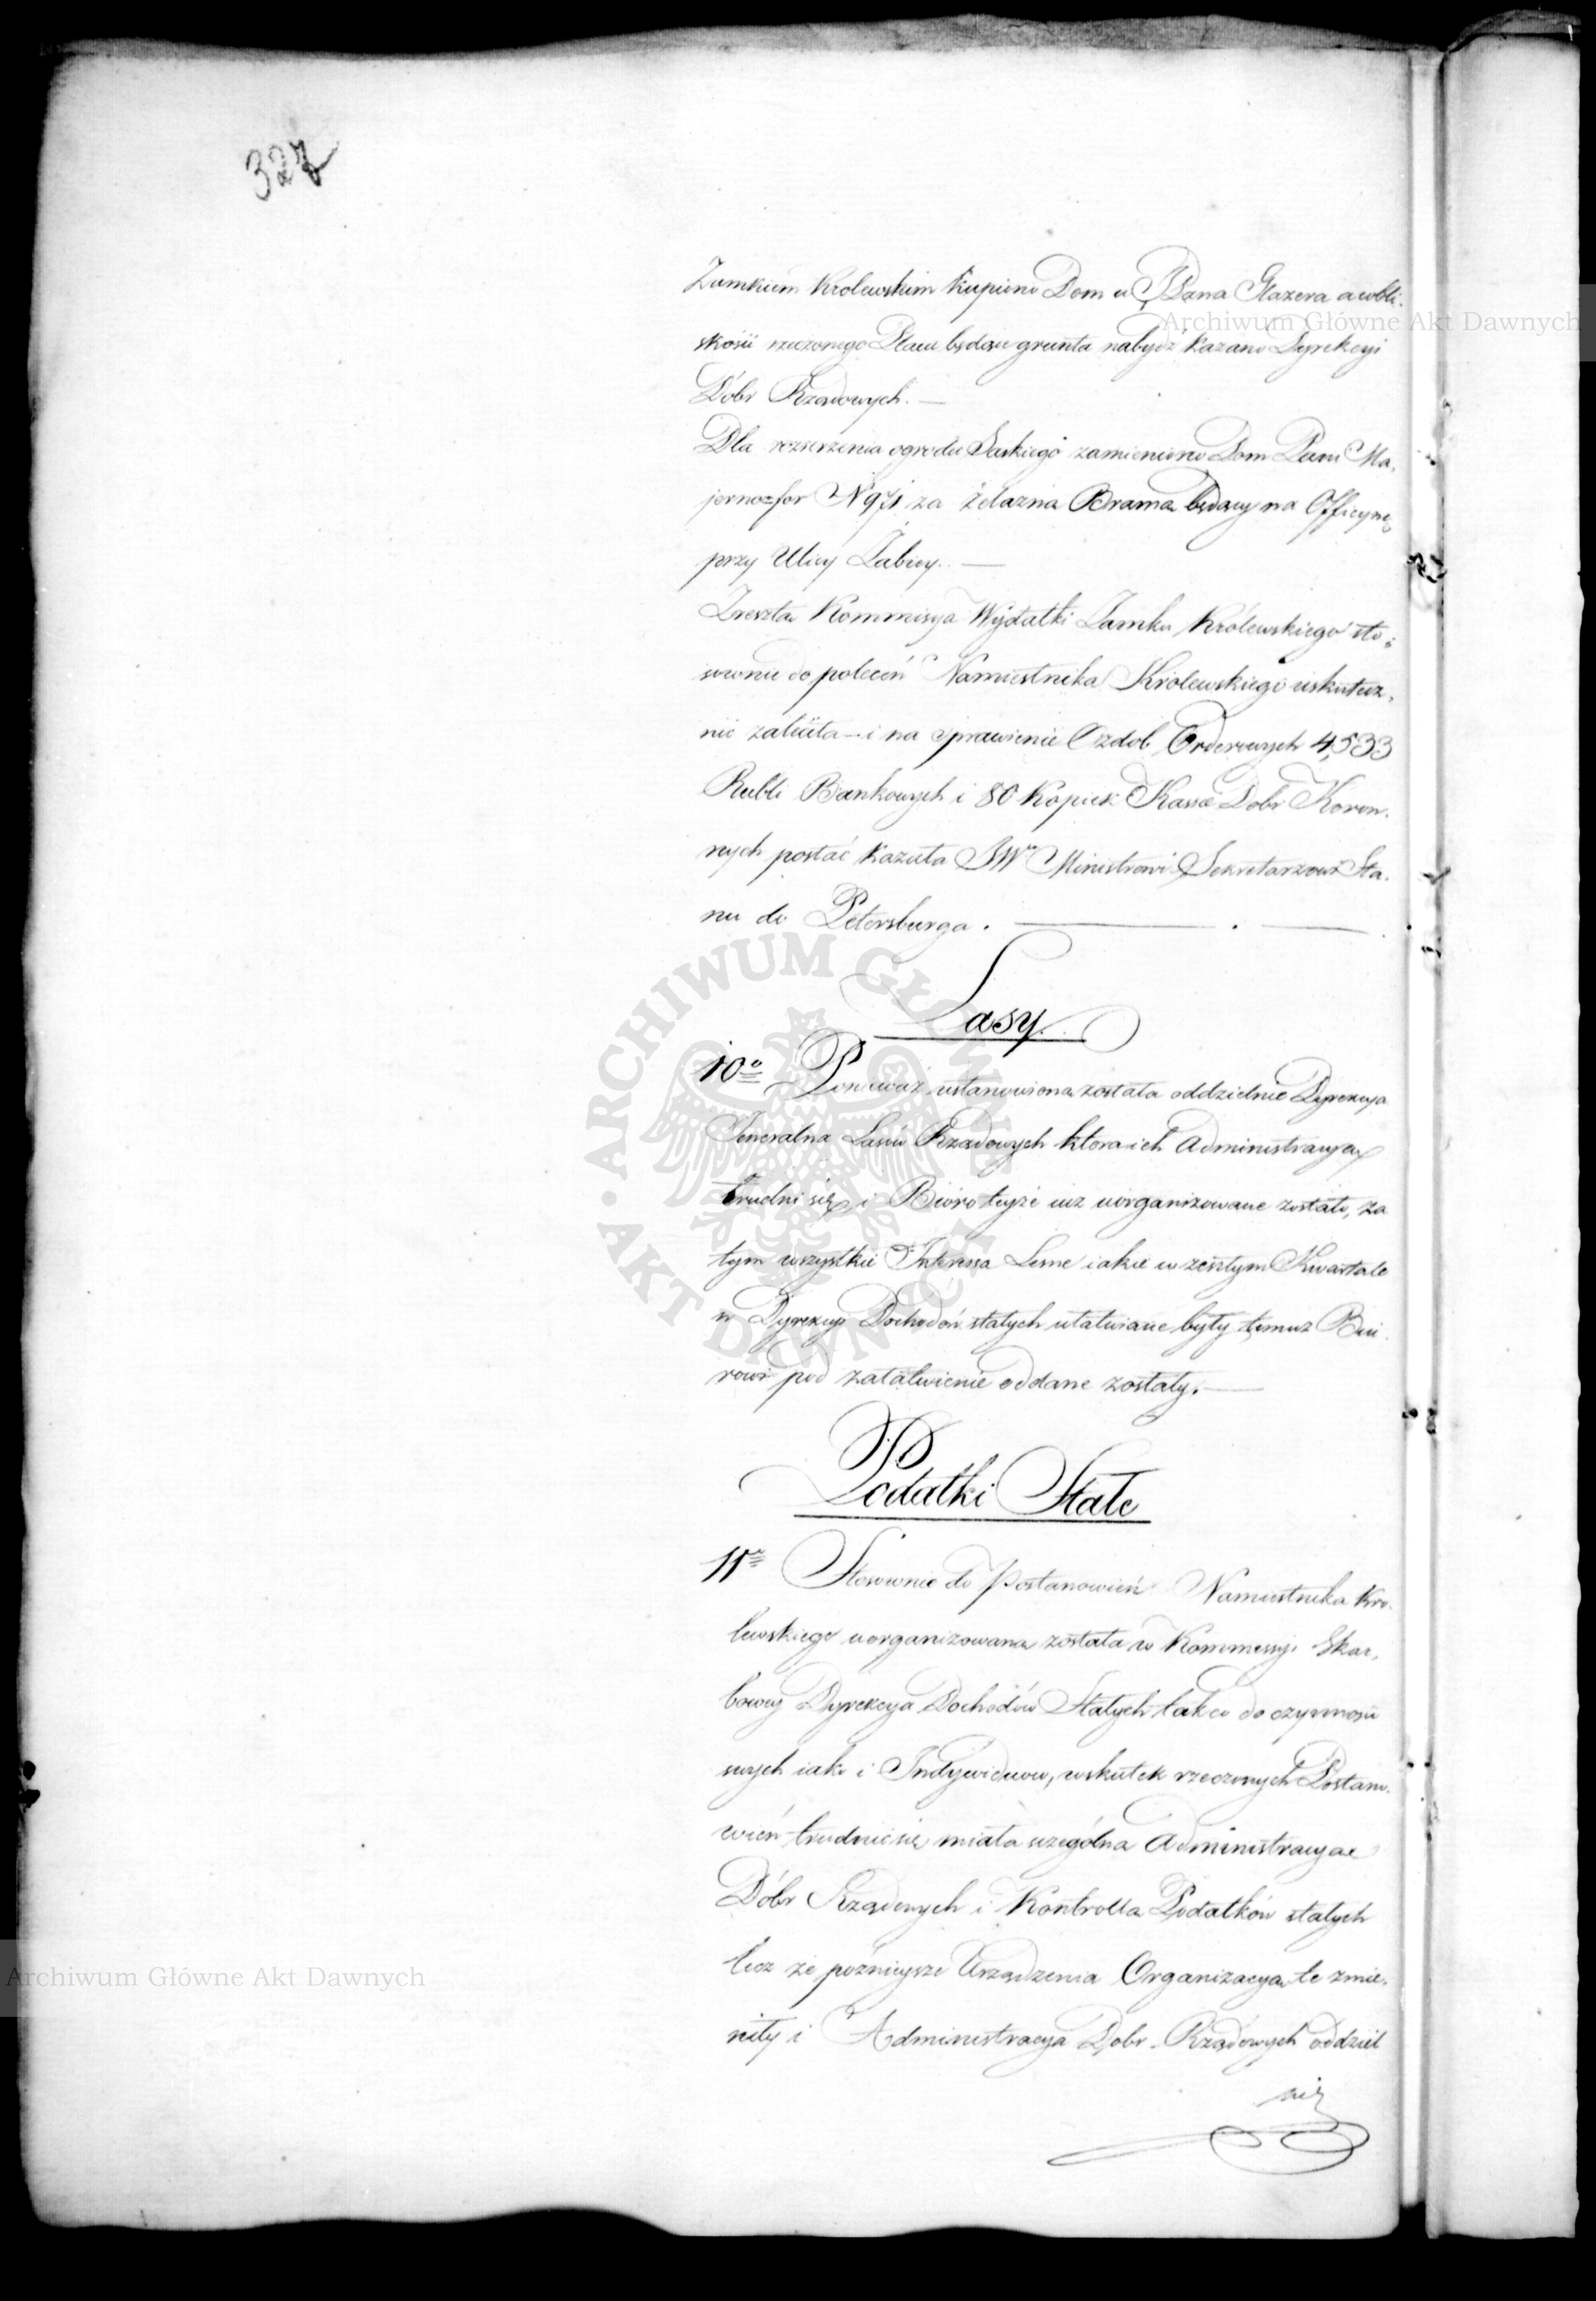 327
Zamkiem Krolewskim kupiono Dom u Pana Glazera a w bli-
skości rzeczonego Placu będące grunta nabydź kazano Dyrekcyi
Dóbr Rządowych. —
Dla rozszerzenia ogrodu Saskiego zamieniono Dom Pani Ma-
jernozfor N 971 za żelazną Bramą będący na Officynę
przy Ulicy Żabiey. —
Zreszta Kommissya Wydatki Zamku Królewskiego sto-
sownie do poleceń Namiestnika Królewskiego uskutecz-
nić zaleciła — i na sprawienie Ozdob Orderowych 4,533
Rubli Bankowych i 80 Kopiek Kassie Dobr Koron-
nych posłać kazała JW Ministrowi Sekretarzowi Sta-
nu do Petersburga. —
Lasy.
10o Ponieważ ustanowiona została oddzielnie Dyrekcya
Jeneralna Lasów Rządowych ktora ich Administracyą
trudni się i Bióro teyże iuż uorganizowane zostało, za
tym wszystkie Interessa Leśne iakie w zeszłym Kwartale
w Dyrekcyi Dochodów stałych ułatwiane były temuż Biu-
rowi pod załatwienie oddane zostały. —
Podatki Stałe
11o Stosownie do Postanowień Namiestnika Kro-
lewskiego uorganizowana została w Kommissyi Skar-
bowey Dyrekcya Dochodów Stałych tak co do czynności
swych iako i Indywiduow, wskutek rzeczonych Postano-
wień trudnić się miała szczególna Administracyą
Dóbr Rządowych i Kontrolla Podatków stałych
lecz że poźnieysze Urządzenia Organizacyą te zmie-
niły i Administracya Dobr Rządowych oddziel
nie
Archiwum Główne Akt Dawnych
Archiwum Główne Akt Dawnych
ARCHIWUM GŁÓWNE AKT DAWNYCH